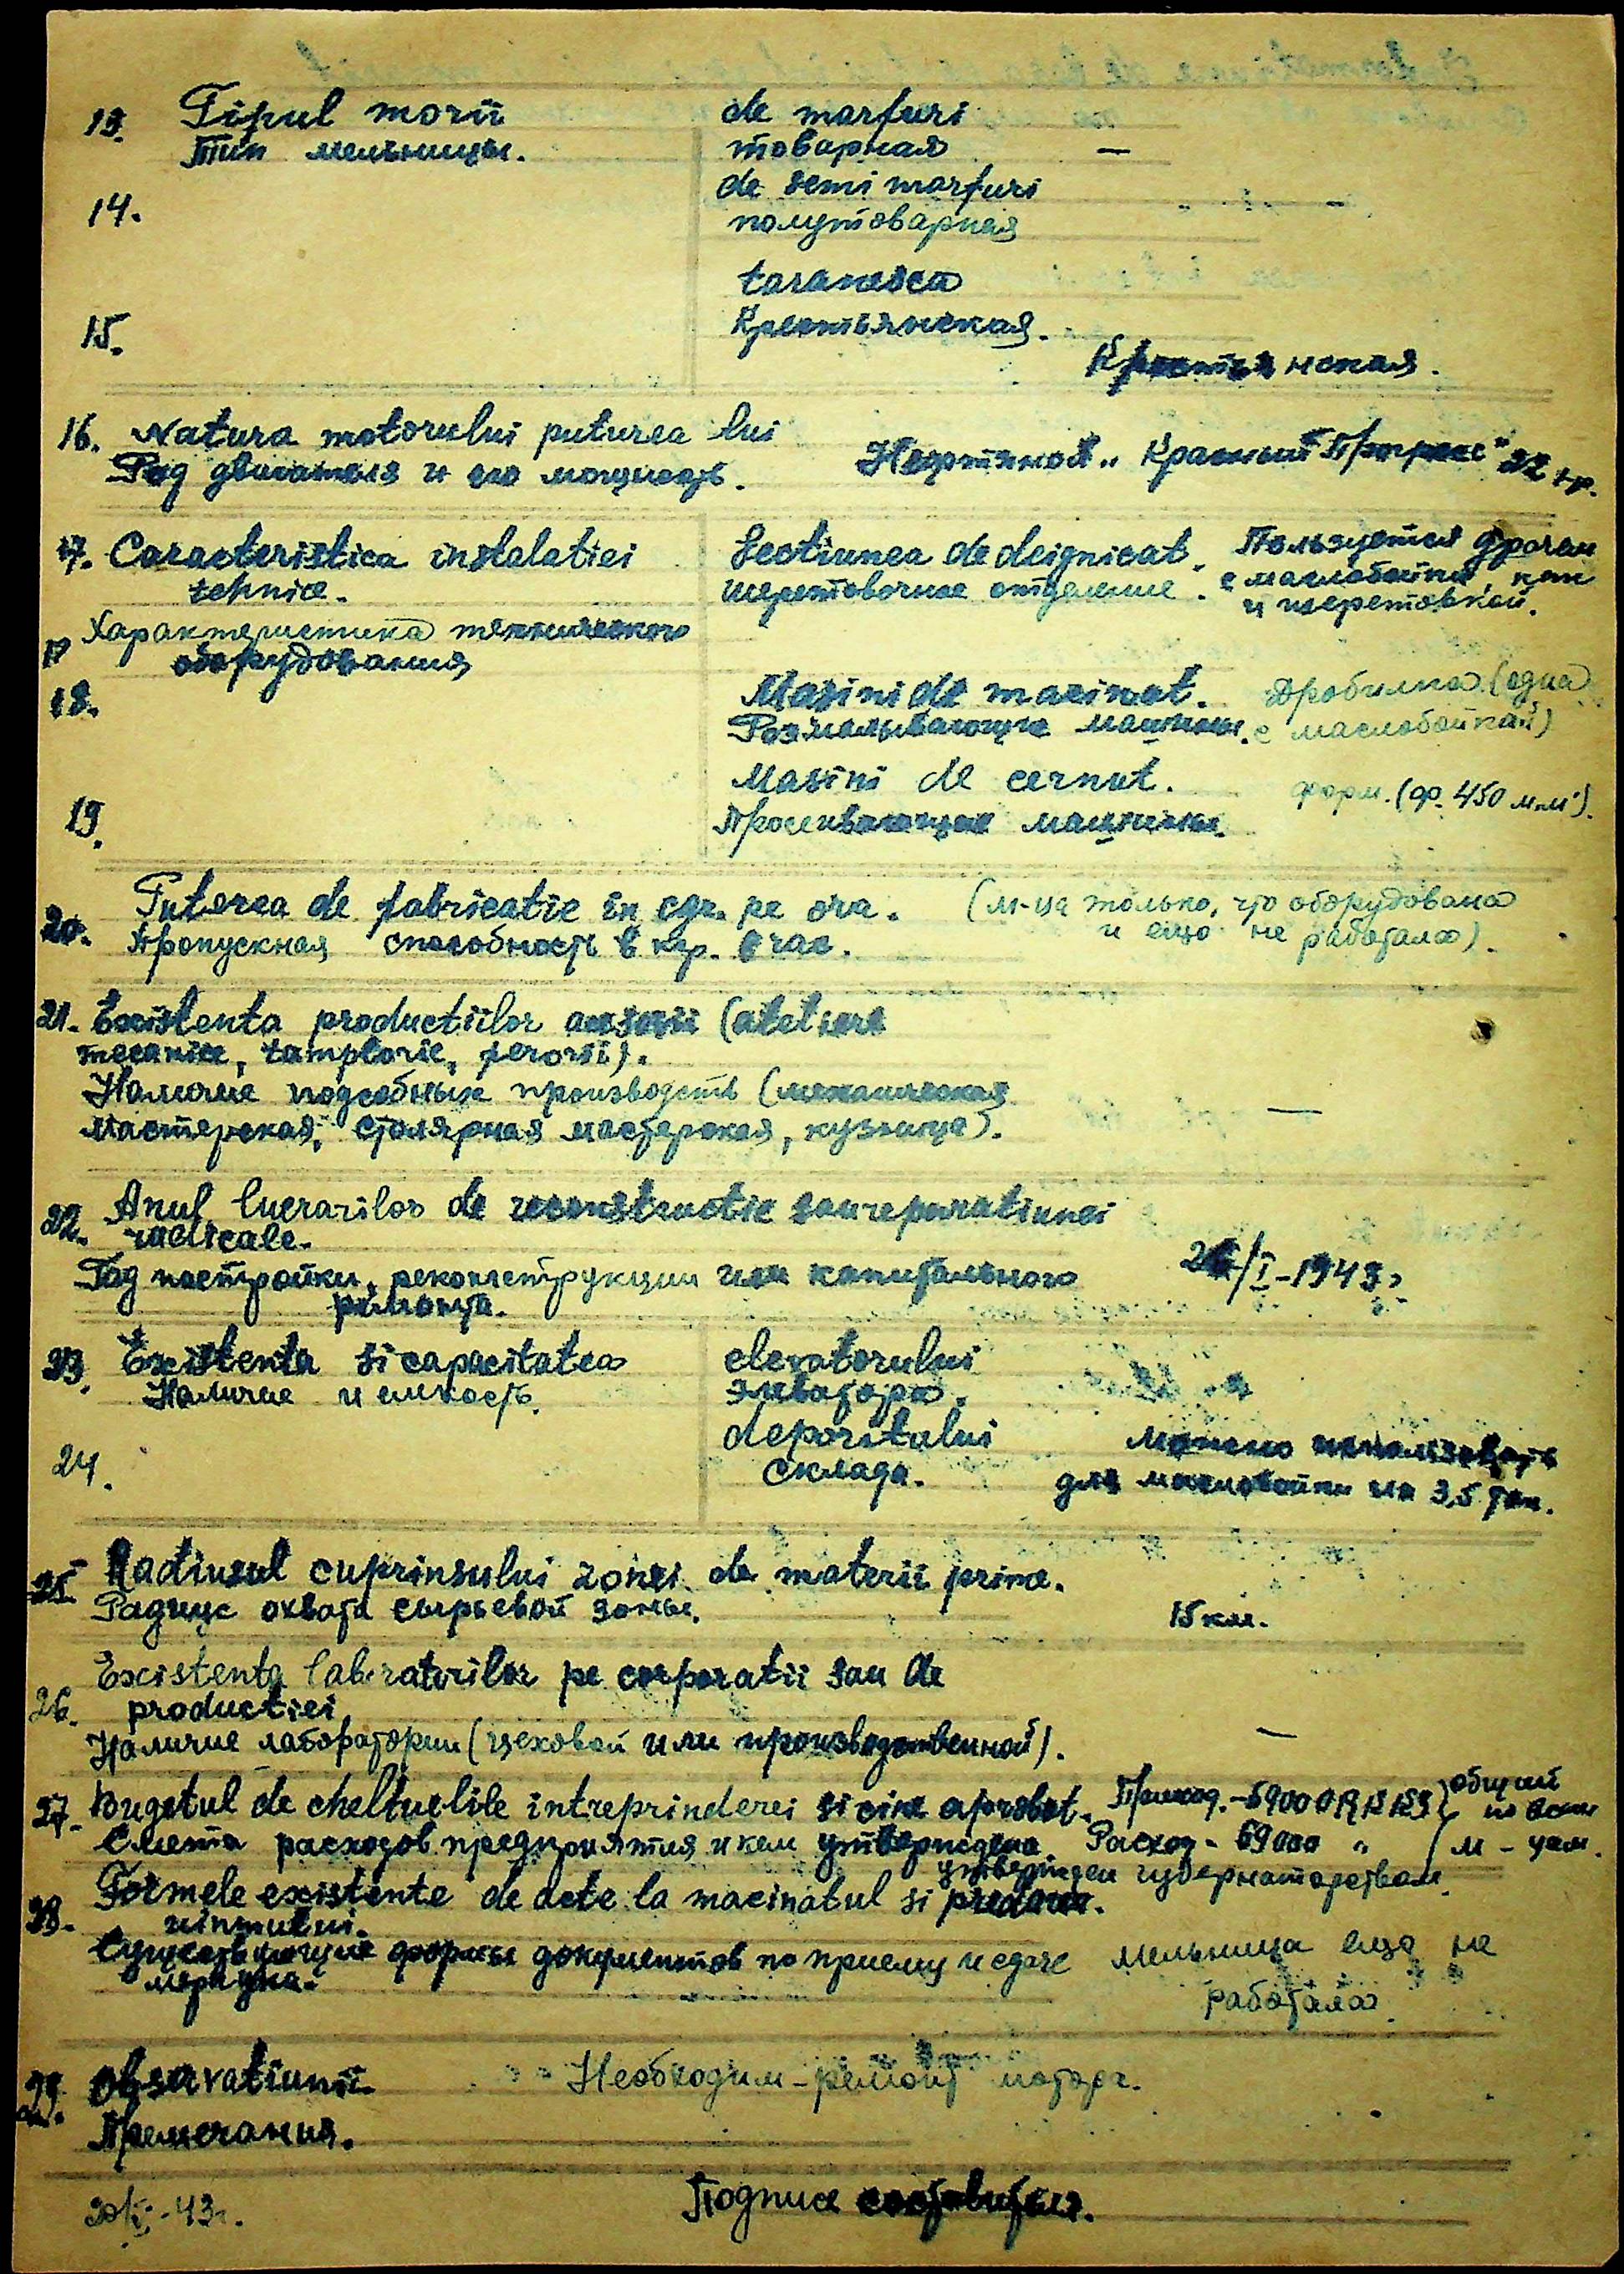 13. Tipul morii
Тип мельницы.
de marfuri
товарная —
14.
de semi marfuri
полутоварная
15.
taranesca
Крестьянская.
Крестьянская.
16. Natura motorului puturea lui
Род двигателя и его мощность.
Нефтяной „Красный Прогресс" 22
17. Caracteristica instalatiei
tehnice.
Характеристика технического
оборудования
Sectiunea de deignicat.
шеретовочное отделение.
Пользуется
с маслобойки, как
и шеретовкой.
18.
Masini de macinat.
Размалывающие машины.
Дробилка (одна
с маслобойкой)
19.
Masini de cernut.
Просеивающие машины.
форм. (ф. 450 м.м.).
20. Puterea de fabricatie in cgr. pe ora.
Пропускная способность в кгр. в час.
(м-ца только, что оборудована
и ещо не работала).
21. Existenta productiilor (ateliere
mecanice, tamplarie, ferarii).
Наличие подсобных производств (механическая
мастерская, столярная мастерская, кузница).
—
22. Anul lucrarilor de reconstructie sau reparatiunei
radicale.
Год постройки, реконструкции или капитального
ремонта.
/I-1943
23. Existenta si capacitatea
Наличие и емкость.
elevatorului
элеватора.
24.
depozitului
склада.
можно использовать
для маслобойки на 3,5 тон.
25. Radiusul cuprinsului zonei de materii prime.
Радиус охвата сырьевой зоны.
15 км.
26. Existenta laboratorilor pe corporatii sau de
productiei
Наличие лаборатории (цеховой или производственной).
—
27. Bugetul de cheltuelile intreprinderei si cine aprobat.
Смета расходов предприятия и кем утверждена
Приход.
Расход - 69000 "
общий
по всем
м-цам.
утвержден губернаторством.
28. Formele existente de acte la macinatul si predarea
Существующие формы документов по приему и сдаче
мерчука.
мельница ещо не
работала.
29. Observatiuni.
Примечания.
Необходим - ремонт мотора.
-43г.
Подпись составителя.